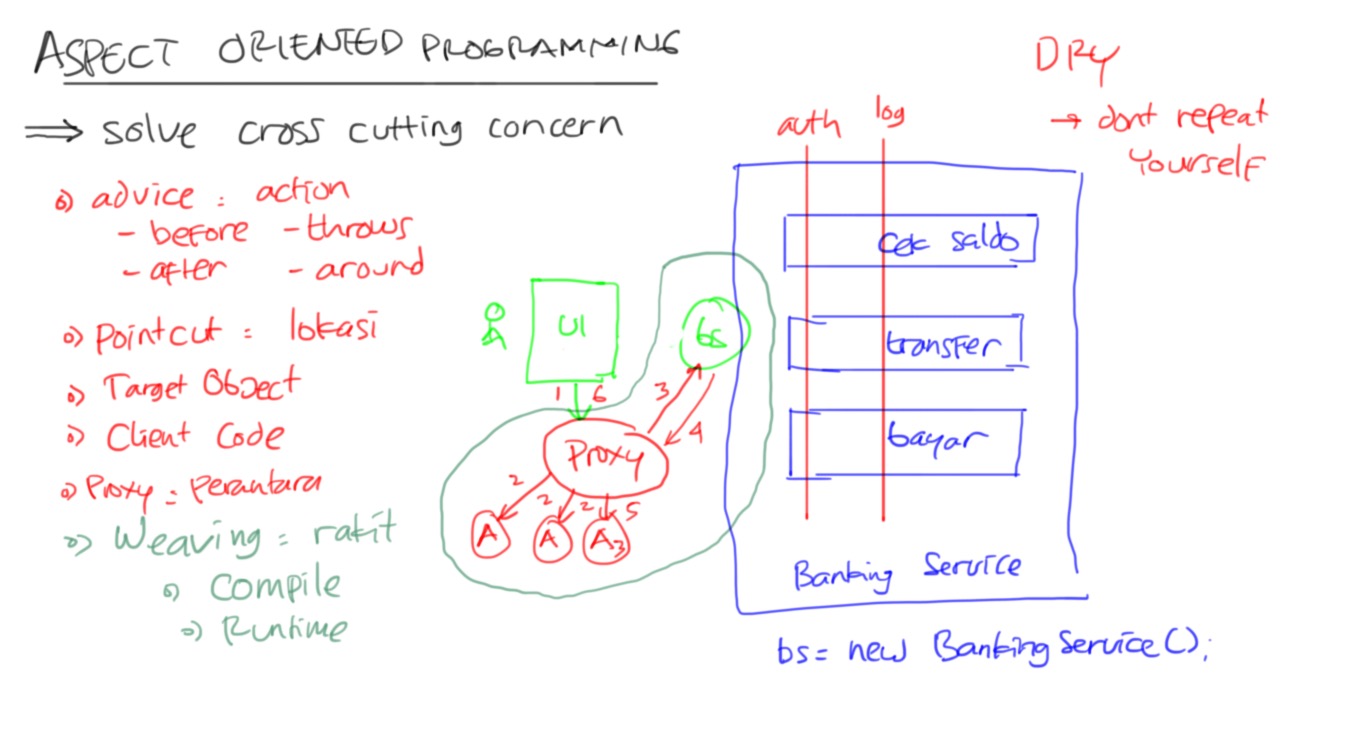 ASPECT ORIENTED PROGRAMMING
⇒ solve cross cutting concern
o) advice : action
- before - throws
- after - around
o) Pointcut = lokasi
o) Target Object
o) Client Code
o) Proxy = perantara
o) Weaving = rakit
o) Compile
o) Runtime
UI
bs
1 6
3
4
Proxy
2 2 2 5
A A A3
DRY
→ dont repeat
Yourself
auth log
cek saldo
transfer
bayar
Banking Service
bs = new BankingService();